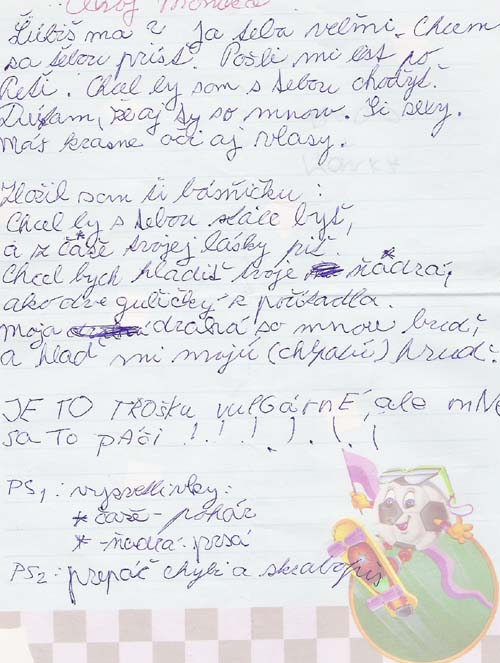 Ahoj Monika
Ľúbiš ma? Ja teba veľmi. Chcem
sa tebou prísť. Pošli mi list po
Peti. Chcel by som s tebou chodyť.
Dúfam, že aj ty so mnou. Si sexy.
Máš krásne oči aj vlasy.
Zložil som ti básničku:
Chcel by s tebou stále byť,
a z čaše* tvojej lásky piť.
Chcel bych hladiť tvoje ňadrá*,
ako dve guličky z počítadla.
Moja drahá so mnou buď,
a hlaď mi moju (chlpatú) hruď.
JE TO TROŠKU vulGárnÉ, ale mNE
sa To pÁči !!!!!!!
PS1: vysvetlivky:
*čaše - pohár
*-ňadra - prsá
PS2: prepáč chybi a skrabopis